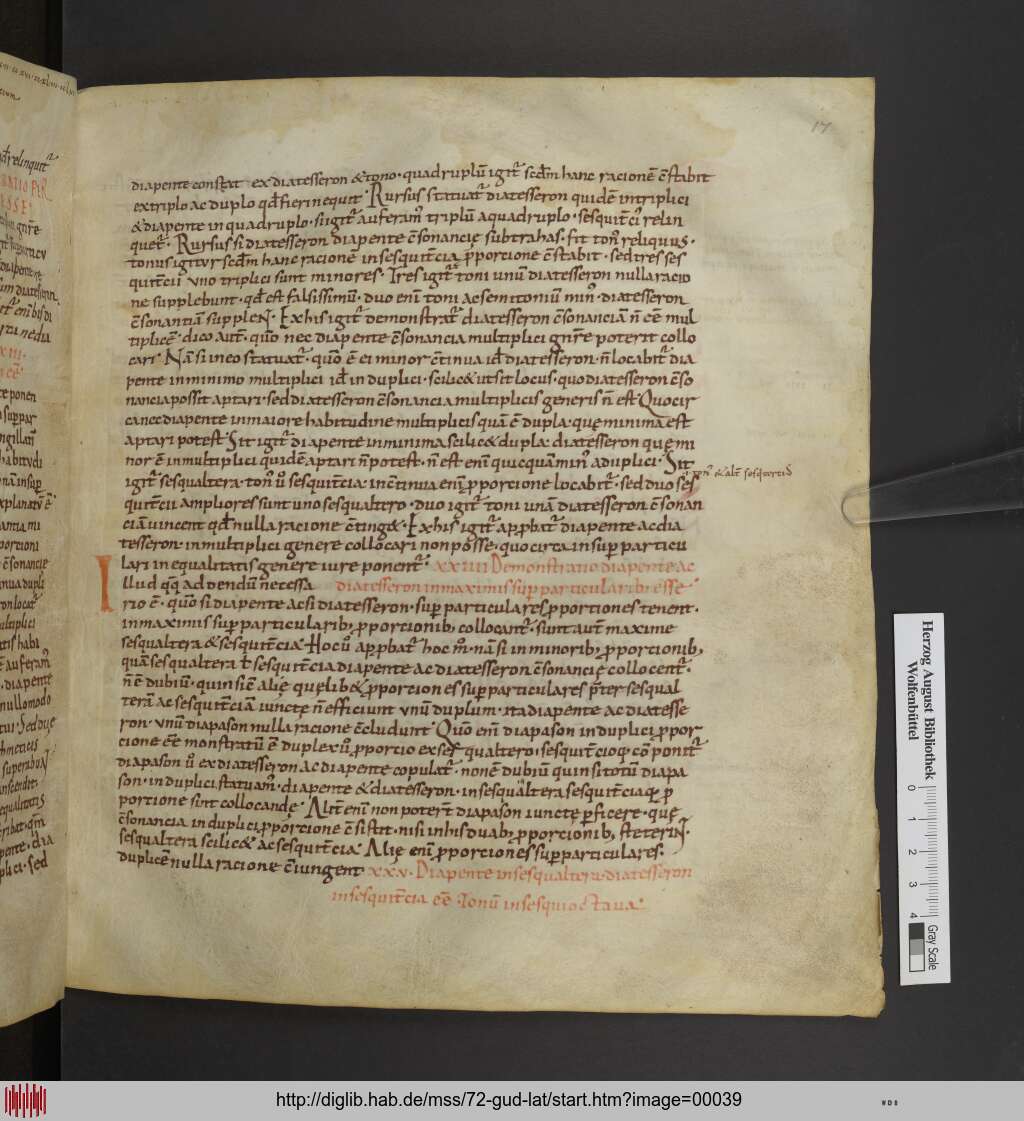 17
diapente constat ex diatesseron &tono· quadruplū igit᷑ scdm hanc racionē c̄stabit
extriplo ac duplo qđ fieri nequit· Rursus statuat᷑ diatesseron quidē intriplici
&diapente in quadruplo· si igit᷑ auferam᷑ triplū aquadruplo· sesquit̄ci relin
quet᷑· Rursus si diatesseron diapente c̄sonancię subtrahas· fit ton᷒ reliquus·
tonus igitur scdm hanc racionē insesquit̄cia p̄porcione c̄stabit· sed tres ses
quit̄cii uno triplici sunt minores· Tres igit᷑ toni unū diatesseron nulla racio
ne supplebunt· qđ est falsissimū· duo eni᷑ toni ac semitoniū min᷒· diatesseron
c̄sonantiā supplent· Ex his igit᷑ demonstrat᷑ diatesseron c̄sonanciā n̄ eē mul
tiplicē· dico aut̄· quō nec diapente c̄sonancia multiplici gn̄re poterit collo
cari· Nā si in eo statuat᷑· quō ē ei minor c̄tinua iđ diatesseron· n̄ locabit᷑ dia
pente in minimo multiplici iđ in duplici· scilic& ut sit locus· quo diatesseron c̄so
nancia possit aptari· sed diatesseron c̄sonancia multiplicis generis n̄ est· Quocir
ca nec diapente in maiore habitudine multiplicis quā ē dupla· quę minima est
aptari potest· Sit igit᷑ diapente in minima scilic& dupla· diatesseron quę mi
nor ē in multiplici quidē aptari n̄ potest· n̄ est eni᷑ quicquā min᷒ a duplici· Sit
igit᷑ sesqualtera· ton᷒ ū sesquit̄cia· in c̄tinua eni᷑ p̄porcione locabit᷑· sed duo ses
quit̄cii ampliores sunt uno sesqualtero· duo igit᷑ toni unā diatesseron c̄sonan
ciā uincent qđ nulla racione c̄ting&· Ex his igit᷑ app̄bat᷑ diapente ac dia
tesseron· in multiplici genere collocari non posse· quocirca in sup̄particu
lari inequalitatis genere iure ponent᷑· XXIIII Demonstratio diapente ac
Illud qq̄ addendū necessa diatesseron in maximis sup̄particularib; esse·
rio ē· quō si diapente ac si diatesseron· sup̄particulares p̄porciones tenent·
in maximis sup̄particularib; p̄porcionib; collocant᷑· sunt aut̄ maxime
sesqualtera & sesquit̄cia· Hoc ū app̄bat᷑ hoc m̊· nā si in minorib; p̄porcionib;
quā sesqualtera ł sesquit̄cia diapente ac diatesseron c̄sonancię collocent᷑·
n̄ ē dubiū· quin sic̄ alię quęlib& p̄porciones sup̄particulares p̄ter sesqual
terā ac sesquit̄ciā iunctę n̄ efficiunt unū duplum· ita diapente ac diatesse
ron· unū diapason nulla racione c̄cludunt· Quō eni᷑ diapason in duplici p̄por
cione eē monstratū ē duplex ū p̄porcio ex sesqualtero· sesquit̄cioq; cōponit᷑
diapason ū ex diatesseron ac diapente copulat᷑· non ē dubiū quin si totū diapa
son· in duplici statuam᷑· diapente & diatesseron· in sesqualtera sesquit̄ciaq; p̄
portione sint collocandę· Alit̄ eni᷑ non poterit diapason iunctę p̄ficere· quę
c̄sonancia in duplici p̄porcione c̄sistit· nisi in his duab; p̄porcionib; steterint·
sesqualtera scilic& ac sesquit̄cia· Alię eni᷑ p̄porciones sup̄particulares·
duplicē nulla racione c̄iungent· XXV· Diapente in sesqualtera· diatesseron
in sesquit̄cia eē· Tonū in sesquioctaua·
Herzog August Bibliothek
Wolfenbüttel
0 1 2 3 4
Gray Scale
http://diglib.hab.de/mss/72-gud-lat/start.htm?image=00039